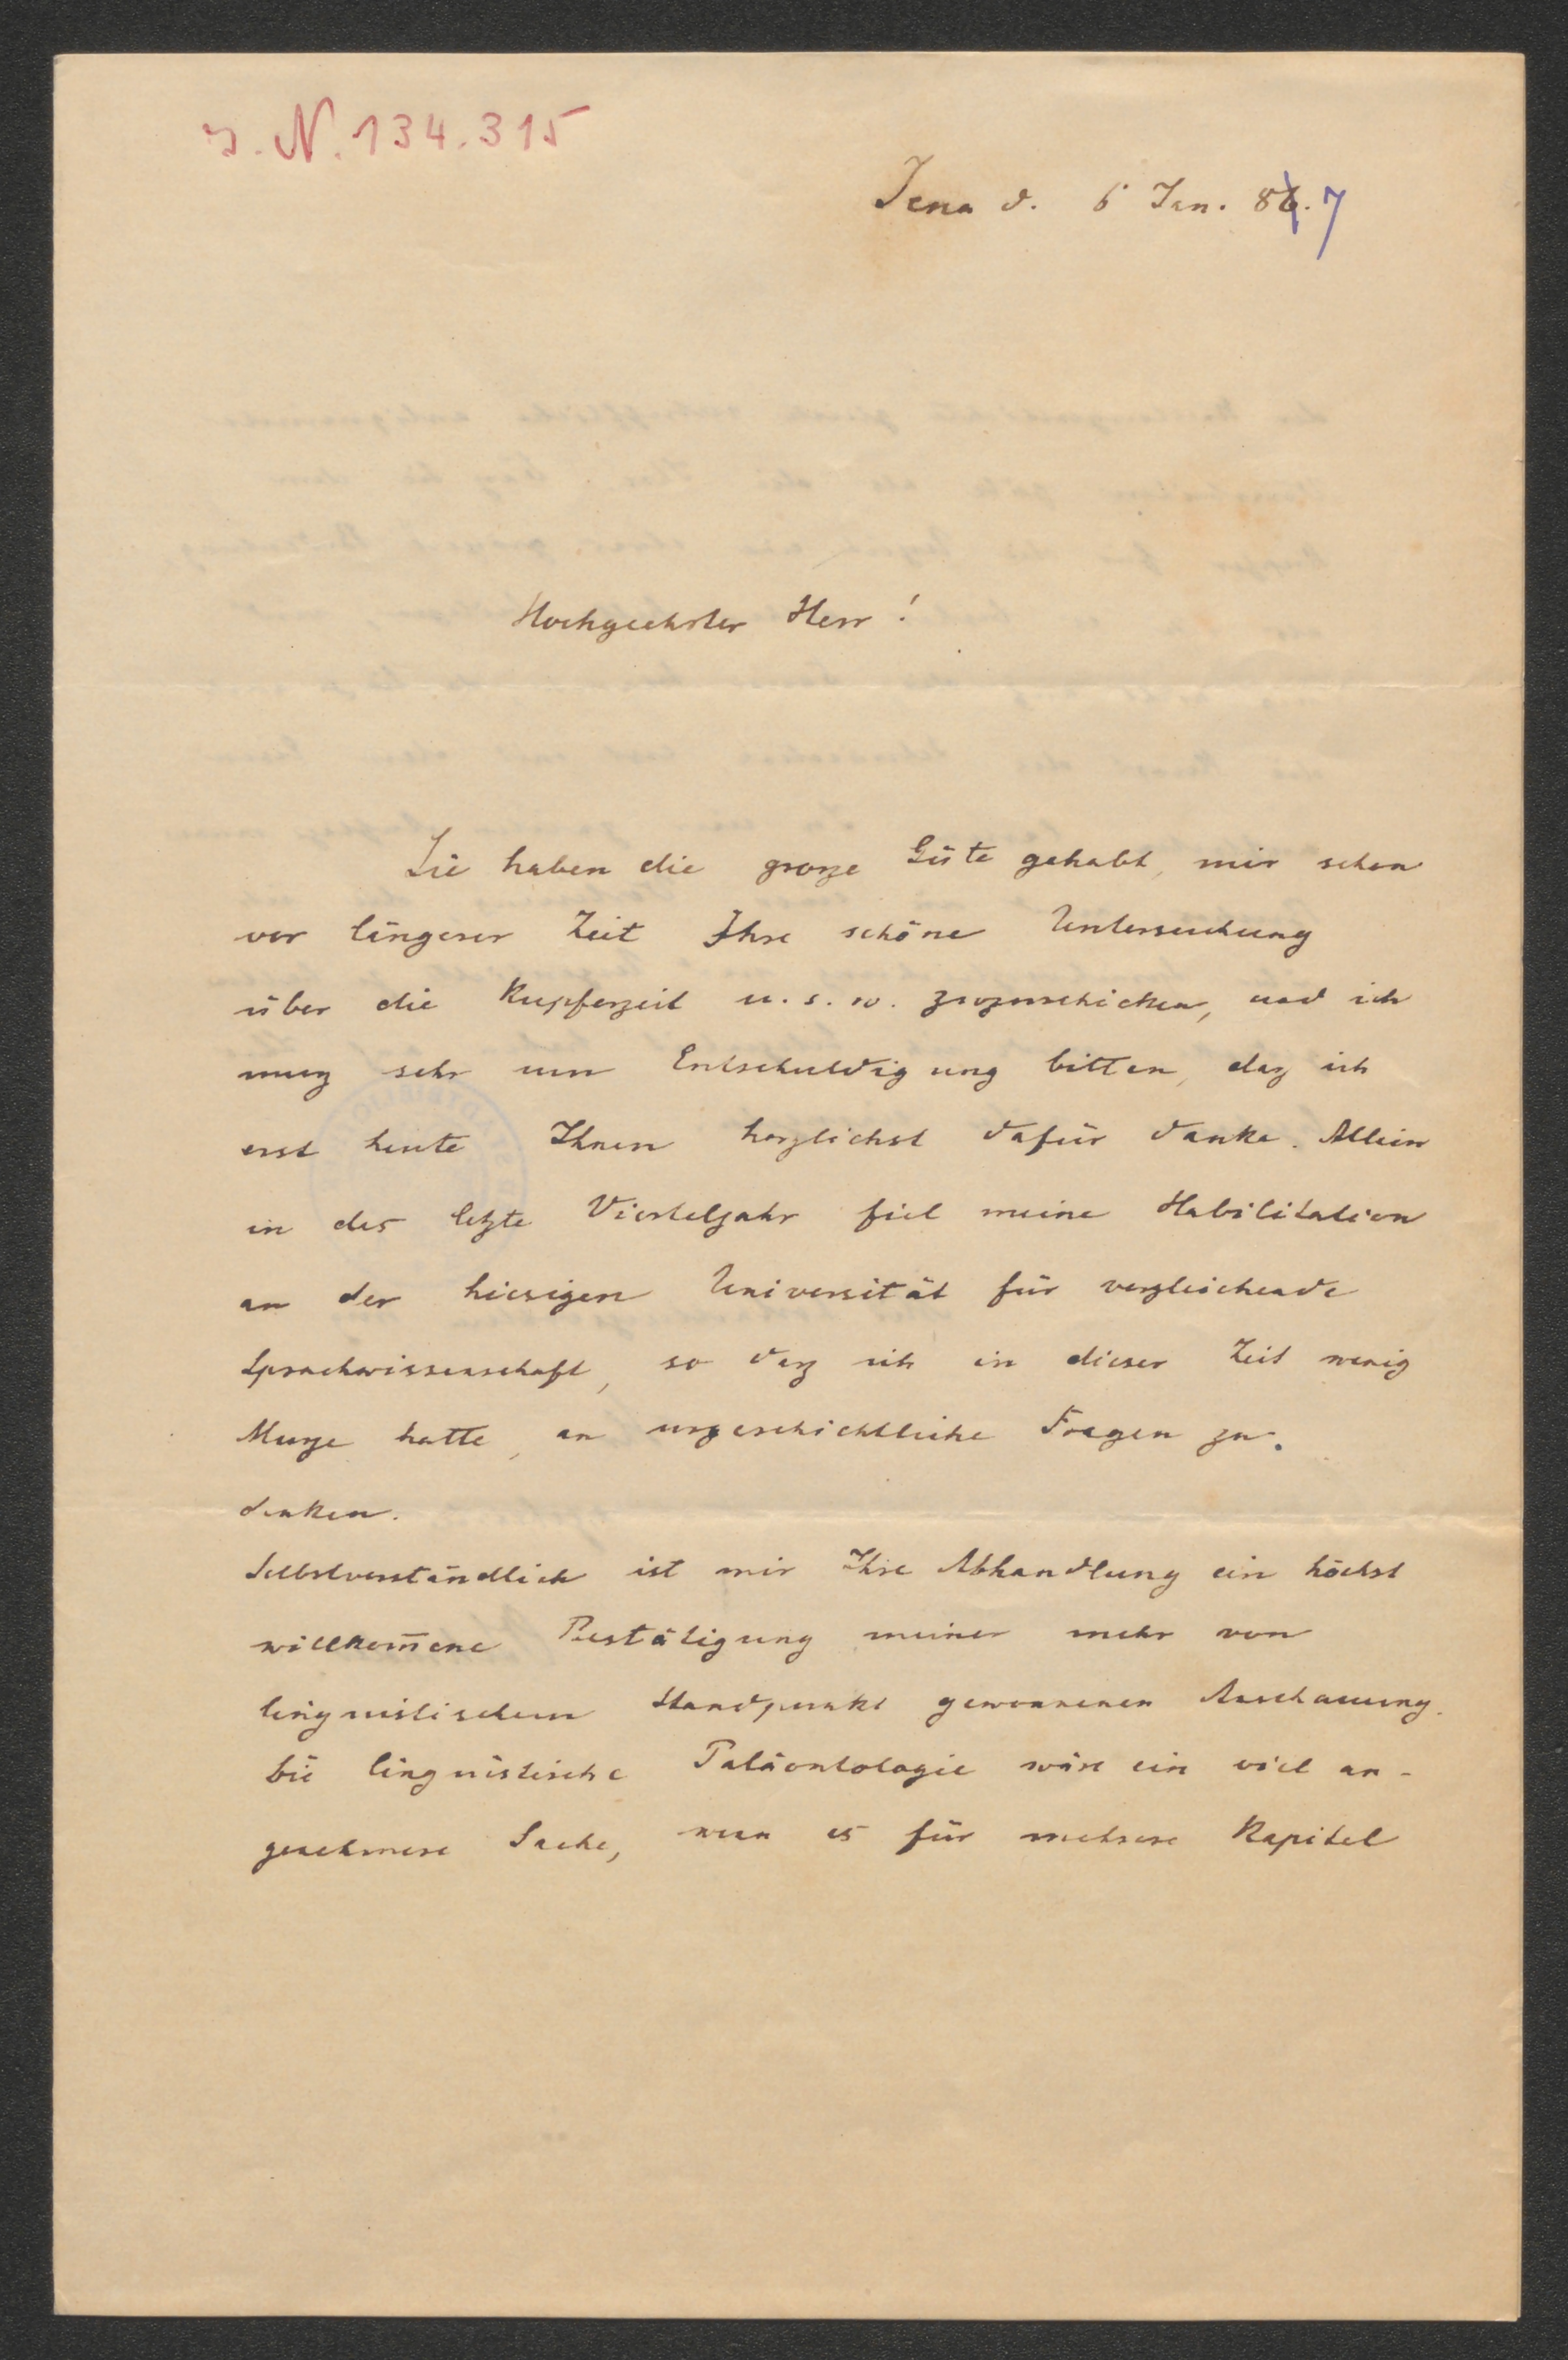 I. N. 134.315
Jena d. 6 Jan. 86. 7
Hochgeehrter Herr!
Sie haben die große Güte gehabt, mir schon
vor längerer Zeit Ihre schöne Untersuchung
über die Kupferzeit u. s. w. zuzuschicken, und ich
muß sehr um Entschuldigung bitten, daß ich
erst heute Ihnen herzlichst dafür danke. Allein
in das letzte Vierteljahr fiel meine Habilitation
an der hiesigen Universität für vergleichende
Sprachwissenschaft, so daß ich in dieser Zeit wenig
Muße hatte, an urgeschichtliche Fragen zu
denken.
Selbstverständlich ist mir Ihre Abhandlung ein höchst
willkom̄ene Bestätigung meiner mehr von
linguistischem Standpunkt gewonnenen Anschauung.
Die linguistische Paläontologie wäre ein viel an-
genehmere Sache, wenn es für mehrere Kapitel